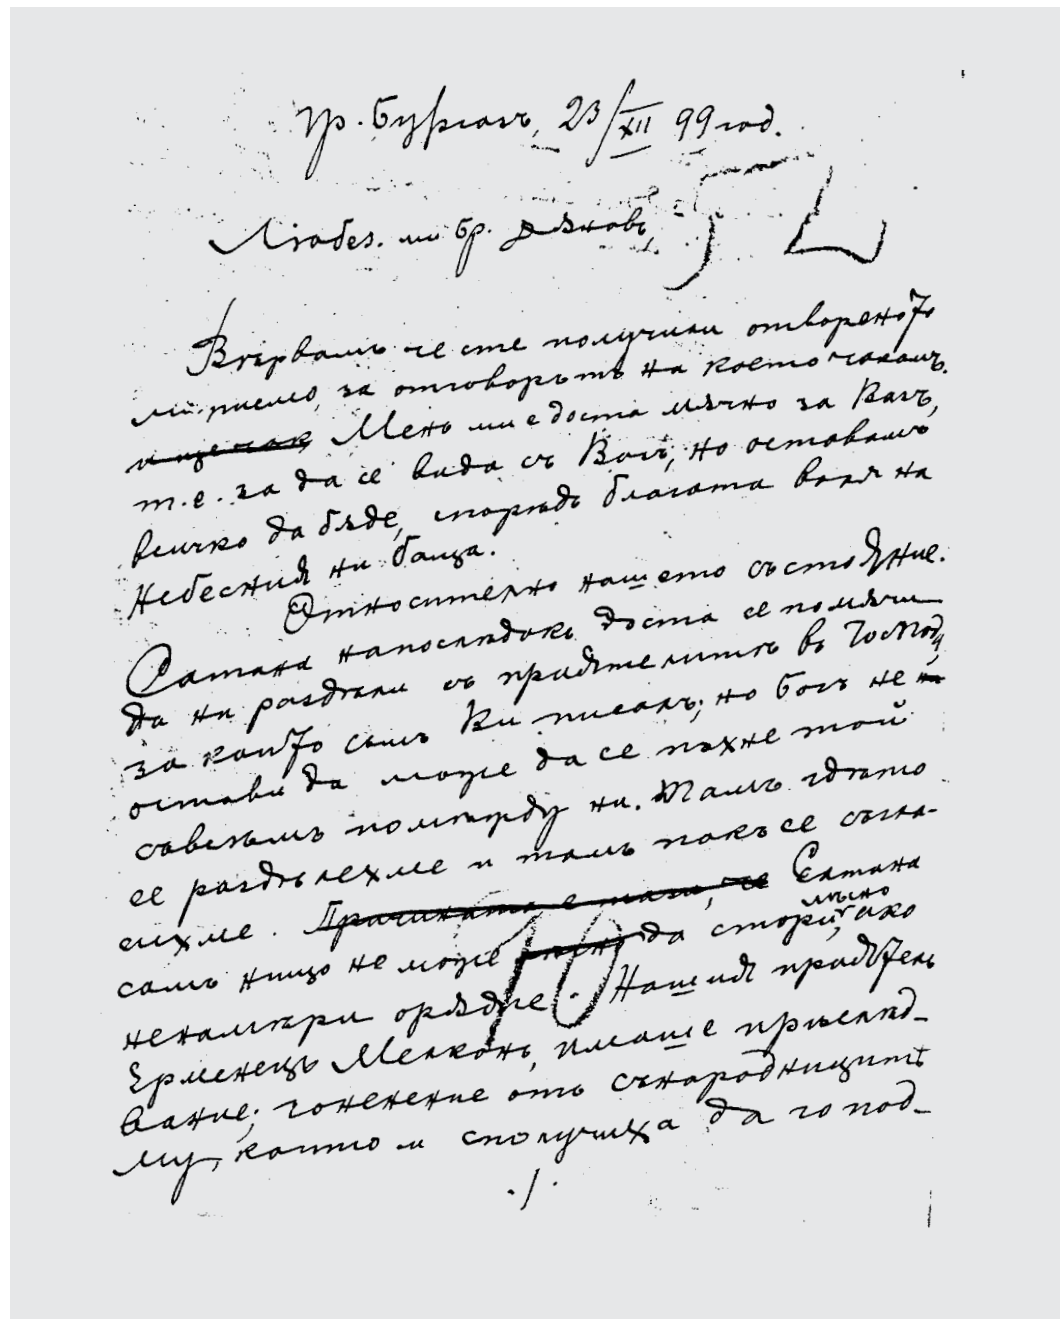 гр. Бургасъ, 23/XII 99 год.
Любез. ми бр. Дѫновъ,
Вѣрвамъ че сте получили отвореното
ми писмо, за отговорътъ на което чакамъ.
Менъ ми е доста мѫчно за Васъ,
т. е. за да се видя съ Васъ, но оставамъ
всичко да бѫде, споредъ благата воля на
Небесния ни баща.
Относително нашето състояние.
Сатана напослѣдокъ доста се помѫчи
да ни раздѣли съ приятелитѣ въ Господа,
за които съмъ Ви писалъ; но Богъ не
остави да може да се пъхне той
съвсѣмъ помежду ни. Тамъ гдѣто
се раздѣлехме и тамъ пакъ се съгла-
сихме. Причината е тази, че Сатана
самъ нищо не може да стори, мѫчно ако
ненамѣри орѫдие. Нашия приятель
Ерменецъ Мелконъ, имаше прѣслѣд-
вание; гонение отъ сънародницитѣ
му, които и сполучиха да го под-
./.
5
10